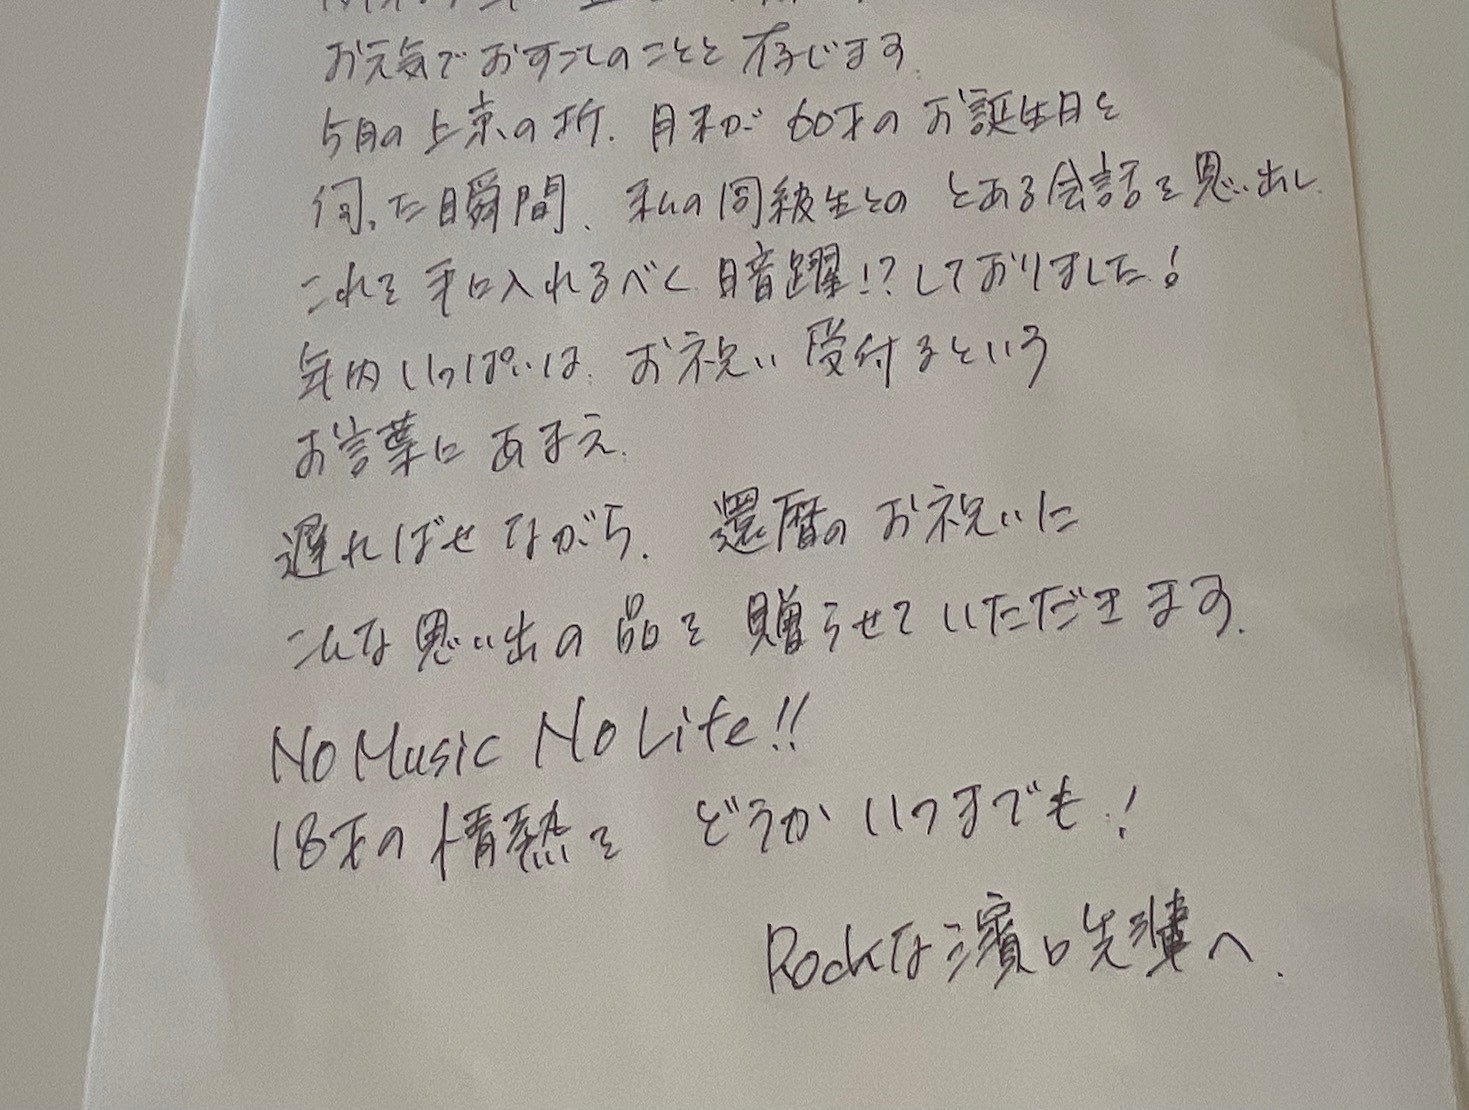 お元気でおすごしのことと存じます。
5月の上京の折、月末が60才のお誕生日と
伺った瞬間、私の同級生とのとある会話を思い出し、
これを手に入れるべく暗躍!?しておりました!
年内いっぱいは、お祝い受付るという
お言葉にあまえ、
遅ればせながら、還暦のお祝いに
こんな思い出の品を贈らせていただきます。
No Music No Life!!
18才の情熱を どうかいつまでも!
Rockな濱口先輩へ.